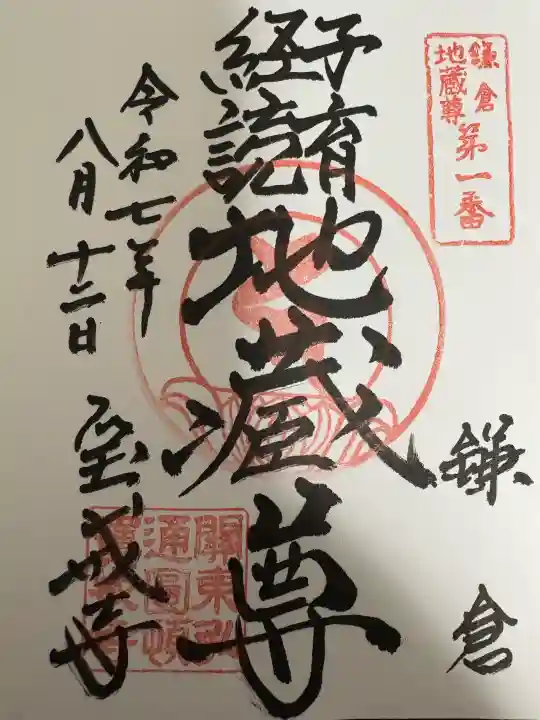 鎌倉
地蔵尊
第一番
鎌倉
子育
経読
地蔵尊
令和七年
八月十二日
宝戒寺
關東弘
通圓頓